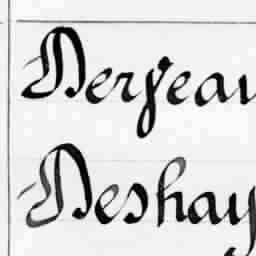 Derjeau
Deshay